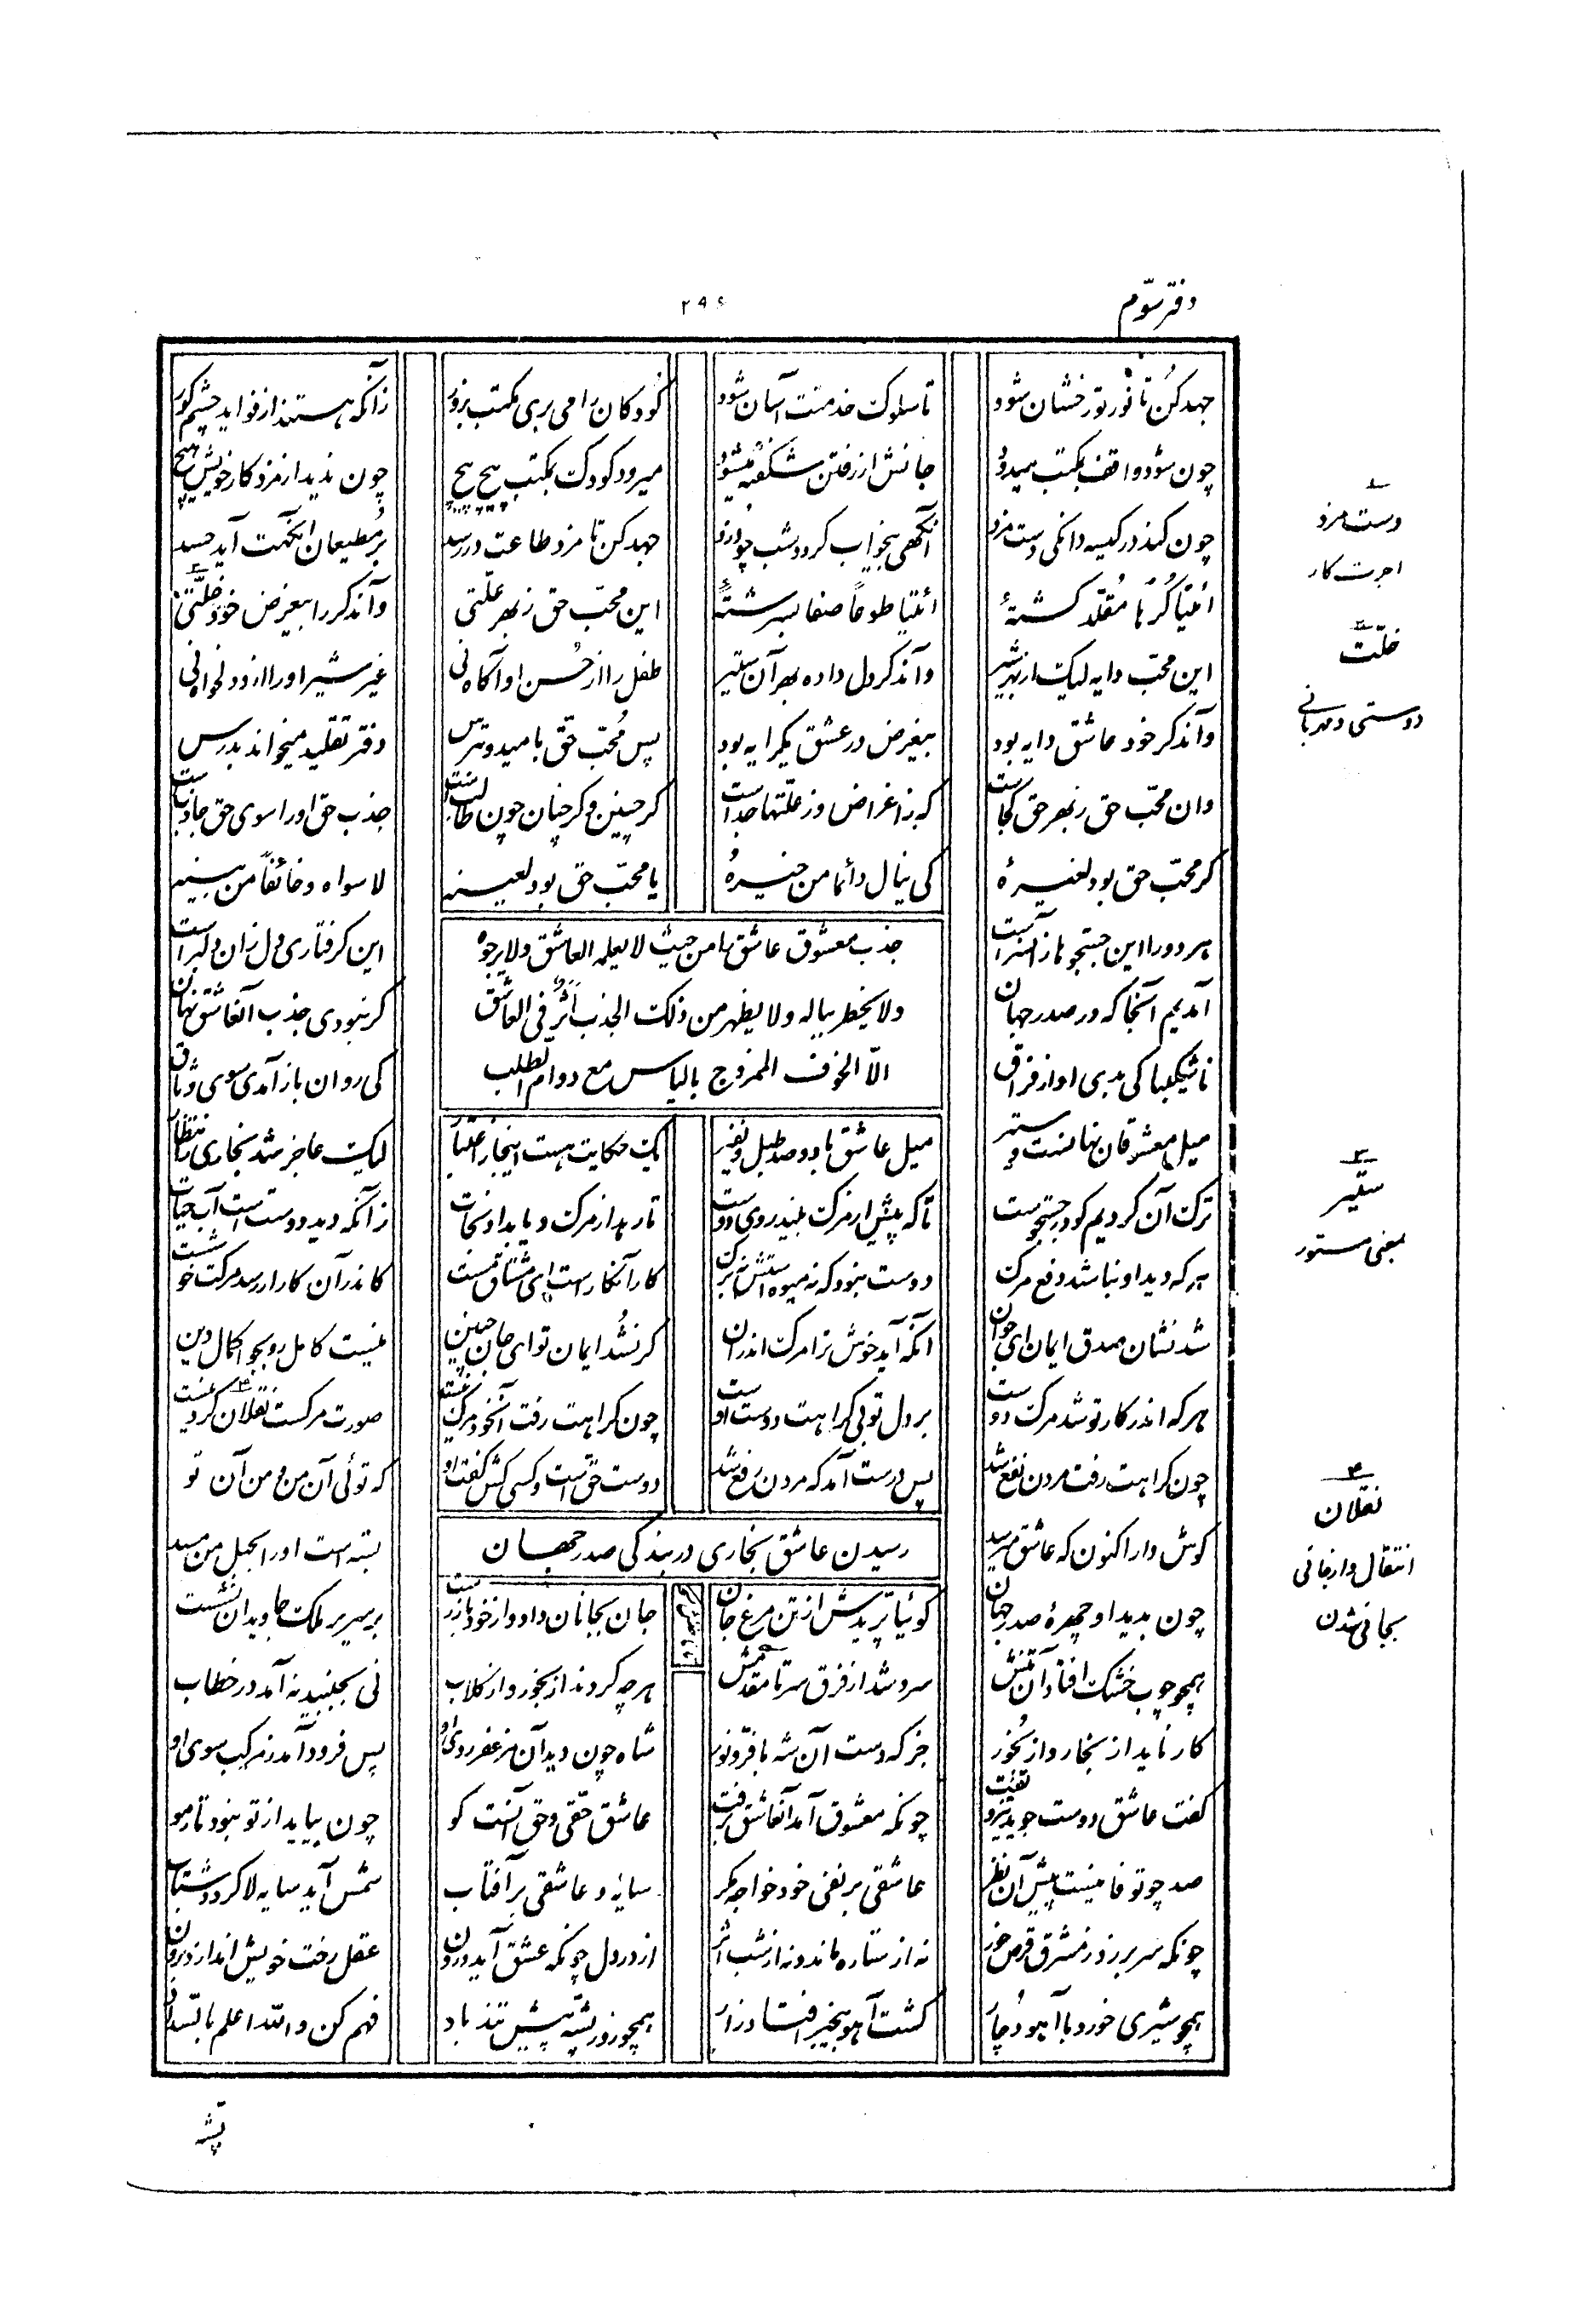 دفتر سوّم
۲۹۶
جهد کن تا نور تو رخشان شود تا سلوک خدمتت آسان شود کودکان را می بری مکتب بزور زآنکه هستند از فواید چشم کور
چون شود واقف بمکتب میدود جانش از رفتن شکفته میشود میرود کودک بمکتب پیچ پیچ چون ندید از مزد کار خویش هیچ
چون کند در کیسه دانگی دست مزد آنگهی بیخواب گردد شب چو دزد جهد کن تا مزد طاعت در رسد بر مطیعان آنگهت آید حسد
ائتیا کرها مقلّد گشتهٔ ائتیا طوعاً صفا بسرشتهٔ این محبّ حق زبهر علّتی وآندگر را بیغرض خود خلّتی
این محبّ دایه لیک از بهر شیر وآندگر دل داده بهر آن ستیر طفل را از حُسن او آگاه نی غیر شیر او را از و دلخواه نی
وآندگر خود عاشق دایه بود بیغرض در عشق یکرایه بود پس مُحبّ حق بامید و ترس دفتر تقلید میخواند بدرس
وان محبّ حق زبهر حق کجاست که ز اغراض و ز علّتها جداست گر چنین و گر چنان چون طالبست جذب حق او را سوی حق جاذبست
گر محبّ حق بود لغیرهٔ کی ینال دائما من خیرهٔ یا محبّ حق بود لعینه لا سواه و خائفاً من بینه
هر دو را این جستجوها زانسراست این گرفتاری دل زان دلبراست
جذب معشوق عاشق را من حیث لا یعلمه العاشق ولا یرجوه
ولا یخطر بباله ولا یظهر من ذلک الجذب اثرٌ فی العاشق
الّا الخوف الممزوج بالیاس مع دوام الطلب
آمدیم آنجا که در صدر جهان گر نبودی جذب آنعاشق نهان
ناشکیبا کی بدی او از فراق کی روان باز آمدی سوی وثاق
میل معشوقان نهانست و ستیر میل عاشق با دو صد طبل و نفیر یک حکایت هست اینجا ز اعتبار لیک عاجز شد بخاری ز انتظار
ترک آن کردیم کو در جستجوست تاکه پیش از مرگ بیند روی دوست تا رهد از مرگ و یابد او نجات زآنکه دید دوستست آب حیات
هر که دید او نباشد دفع مرگ دوست نبود که نه میوه استش نه برگ کار آنکار است ای مشتاق مست کاندر آن کار ار رسد مرگت خوشست
شد نشان صدق ایمان ای جوان آنکه آید خوش ترا مرگ اندران گر نشُد ایمان تو ای جان چنین نیست کامل رو بجو اکمال دین
هر که اندر کار تو شد مرگ دوست بر دل تو بی کراهت دوست اوست چون کراهت رفت آنخود مرگ نیست صورت مرگست نقلان کردنیست
چون کراهت رفت مردن نفع شد پس درست آمد که مردن رفع شد دوست حق است و کسی کش گفت او که توئی آن من و من آن تو
گوش دار اکنون که عاشق میرسد بسته است او را بحبل من مسد
رسیدن عاشق بخاری در بندگی صدر جهان
چون بدید او چهرهٔ صدر جهان گوئیا پریدش از تن مرغ جان جان بجانان داد و از خود باز رست بر سریر ملک جاویدان نشست
همچو چوب خشک افتاد آن تنش سرد شد از فرق سر تا مقدمش هر چه کردند از بخور و از گلاب نی بجنبید نه آمد در خطاب
کار ناید از بخار و از بُخور جز که دست آن شه با فرّ و نور شاه چون دید آن مزعفر روی او پس فرود آمد ز مرکب سوی او
گفت عاشق دوست جوید تیز و تفت چونکه معشوق آمد آنعاشق برفت عاشق حقی و حق آنست کو چون بیاید از تو نبود تار مو
صد چو تو فانیست پیش آن نظر عاشقی بر نفی خود خواجه مگر سایهٔ و عاشقی بر آفتاب شمس آید سایه لا گردد شتاب
چونکه سر بر زد ز مشرق قرص خور نه از ستاره ماند و نه از شب اثر از در دل چونکه عشق آید درون عقل رخت خویش اندازد برون
همچو شیری خورد با آهو دُچار گشت آهو بیخبر افتاد زار همچو زور پشّه پیش تند باد فهم کن والله اعلم بالسّداد
پشّه
۱
دست مزد
اجرت کار
۲
خلّت
دوستی و مهربانی
۳
ستیر
بمعنی مستور
۴
نقلان
انتقال دار فانی
بجافی شدن